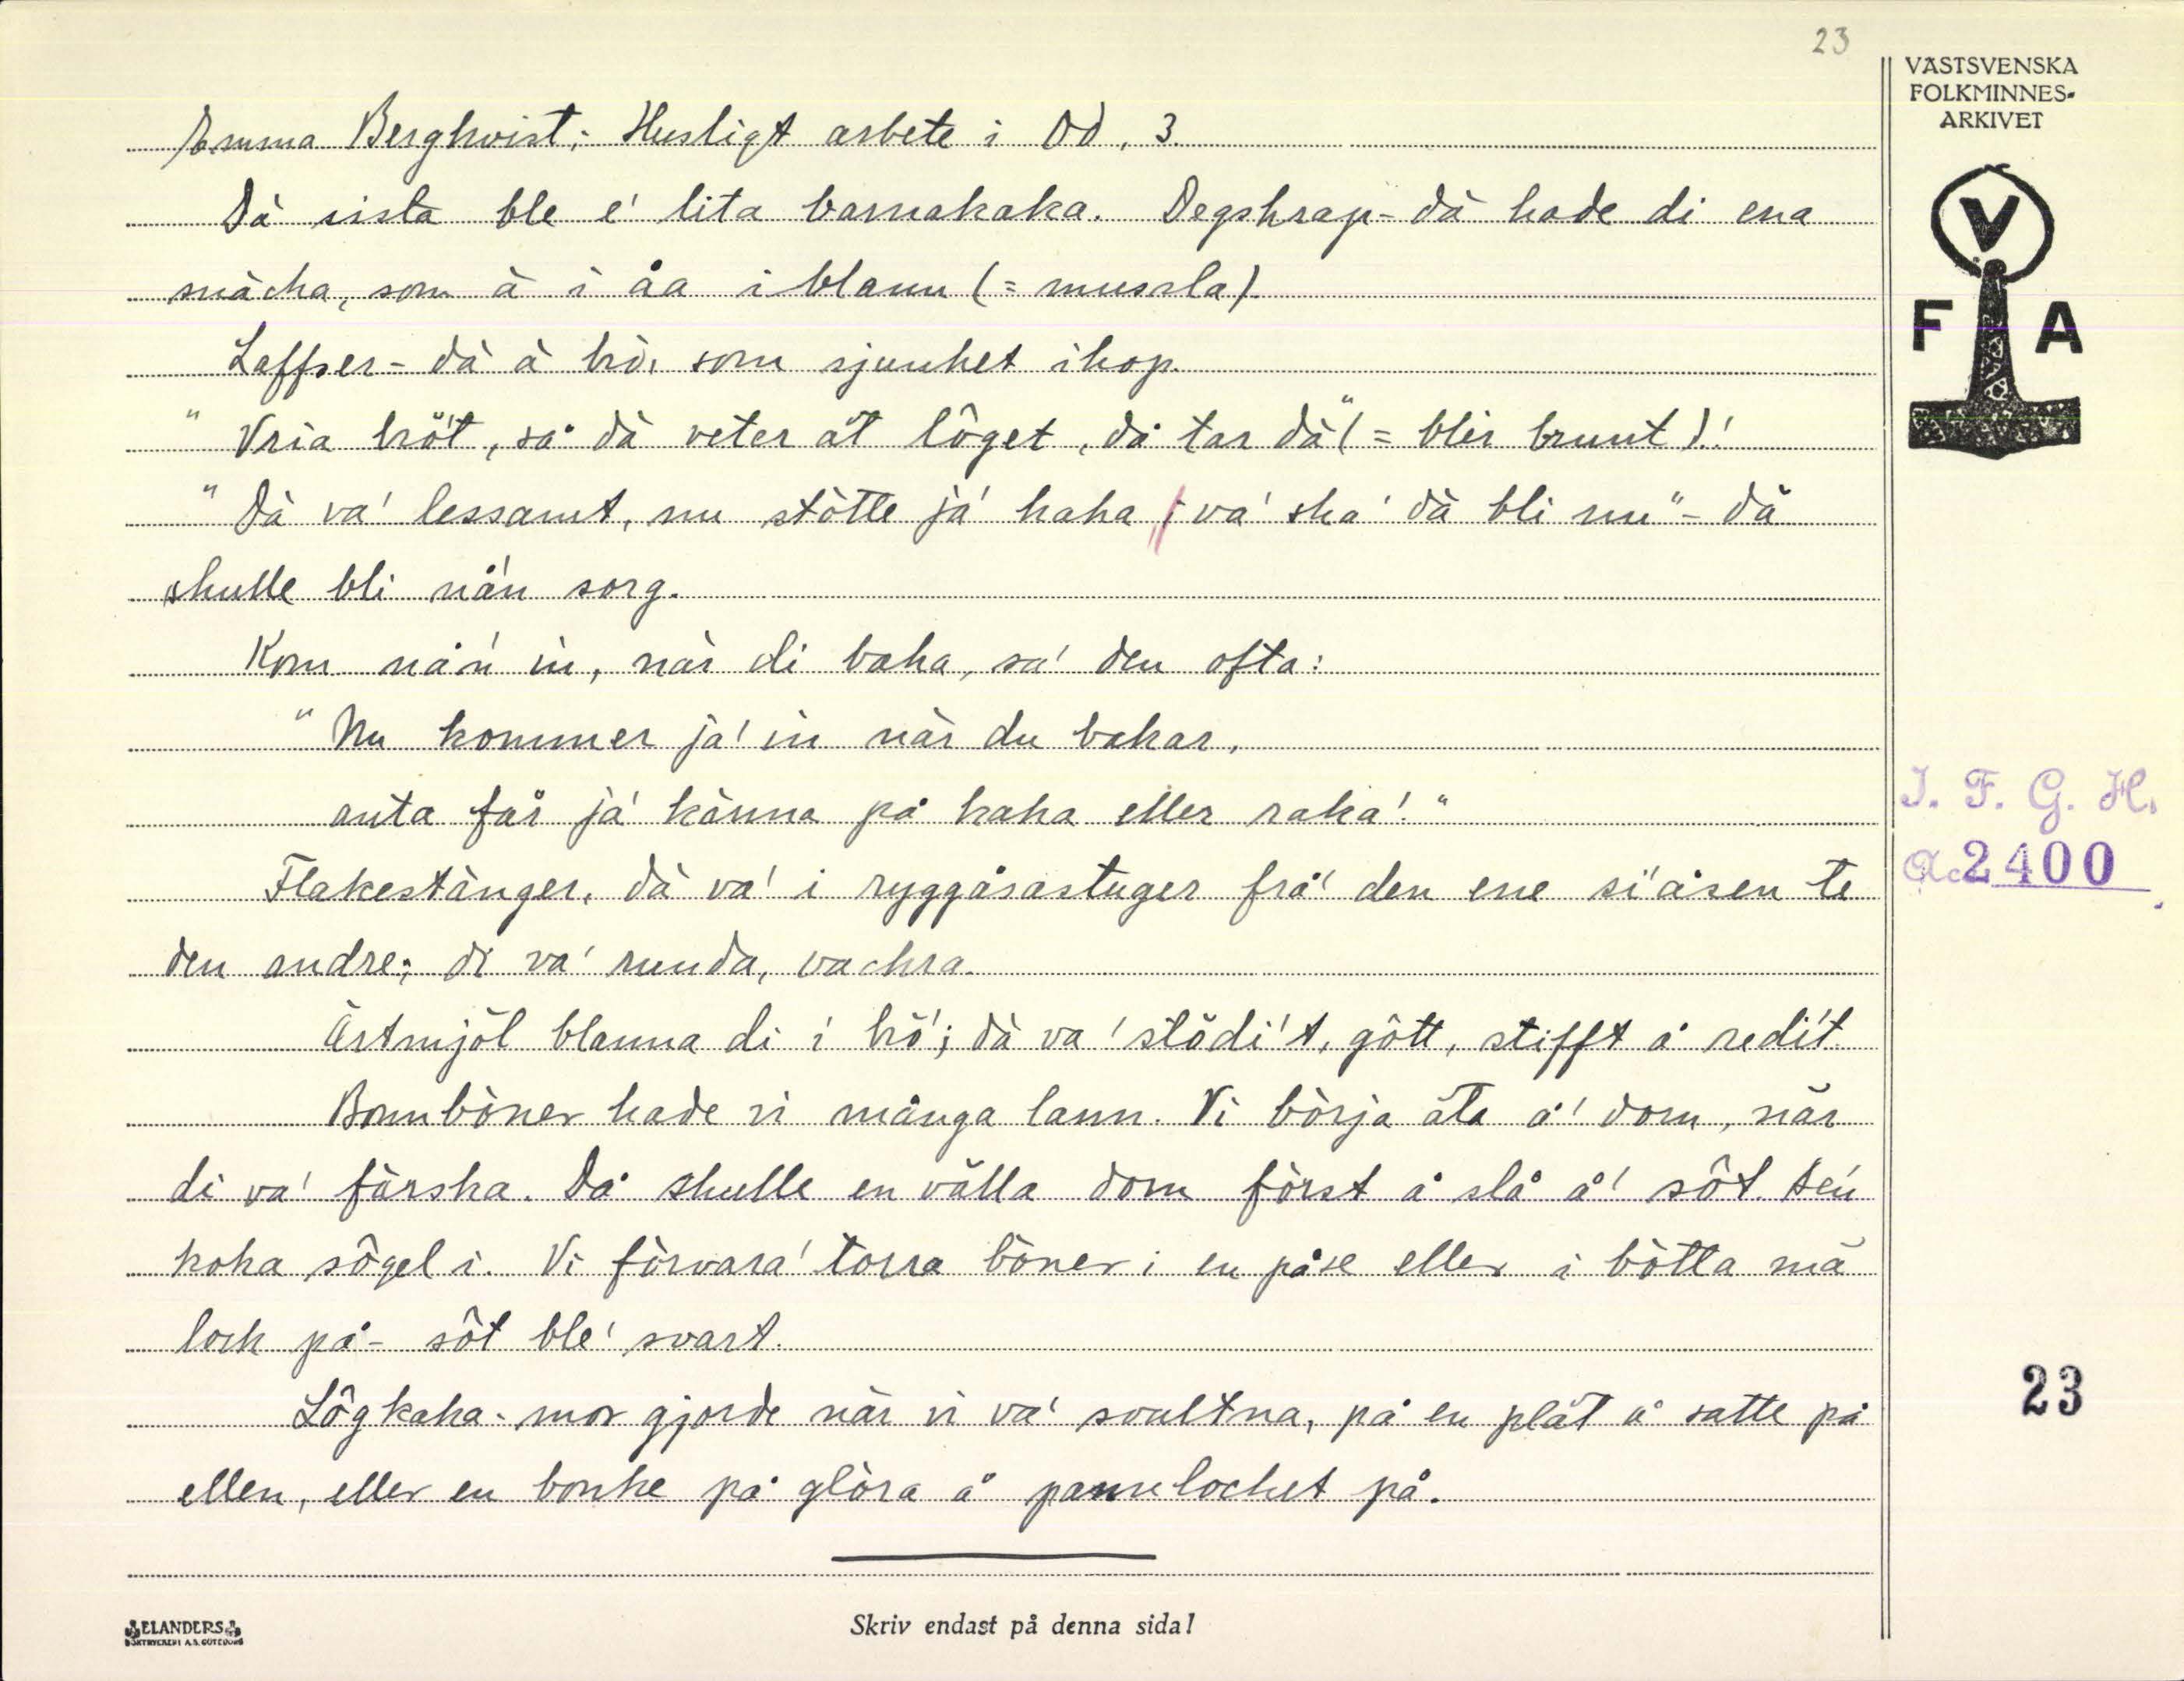 23
VÄSTSVENSKA
FOLKMINNES-
ARKIVET
Emma Berghvist: Husligt arbete i Od. 3.
Dä sista ble e' lita barnakaka. Degskrap - dä hade di ena
snäcka, som ä i åa iblann (= mussla).
Loffser - dä ä brö, som sjunket ihop.
"Vria bröt, så dä veter åt lôget, då tar dä" (= blir brunt)!
"Dä va' lessamt, nu stötte ja' kaka, va' ska' dä bli nu" - dä
skulle bli nå'n sorg.
Kom nå'n in, när di baka, sa' den ofta:
"Nu kommer ja' in när du bakar,
anta får ja' känna på kaka eller raka'."
Flakestänger, dä va' i ryggåsastuger frå' den ene si'åsen te
den andre; di va' runda, vackra.
Ärtmjöl blanna di i brö'; dä va' stödi't, gôtt, stifft å redi't.
Bomböner hade vi många lann. Vi börja äta å' dom, när
di va' färska. Då skulle en välla dom först å slå å' sôt. Sen
koka sôgel i. Vi förvara' torra böner i en påse eller i bötta mä
lock på - sôt ble' svart.
Lôgkaka - mor gjorde när vi va' svultna, på en plåt å satte på
ellen, eller en bonke på glöra å pannelocket på.
V
F A
I. F. G. H.
Acc 2400
23
ELANDERS
BOKTRYCKERI A.B. GÖTEBORG
Skriv endast på denna sida!